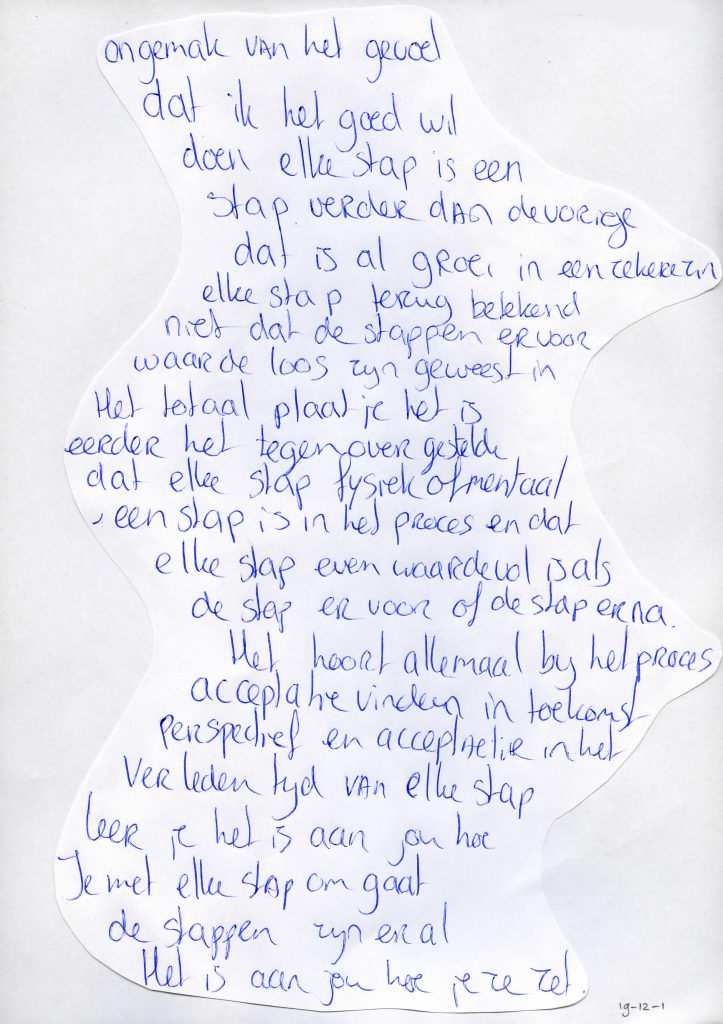 ongemak van het gevoel
dat ik het goed wil
doen elke stap is een
stap verder dan de vorige
dat is al groei in een zekere zin
elke stap terug betekend
niet dat de stappen ervoor
waarde loos zijn geweest in
Het totaal plaatje het is
eerder het tegenover gestelde
dat elke stap fysiek of mentaal
een stap is in het proces en dat
elke stap even waardevol is als
de stap er voor of de stap erna.
Het hoort allemaal bij het proces
acceptatie vinden in toekomst
Perspectief en acceptactie in het
Ver leden tijd van elke stap
leer je het is aan jou hoe
Je met elke stap om gaat
de stappen zijn er al
Het is aan jou hoe je ze zet.
19-12-1